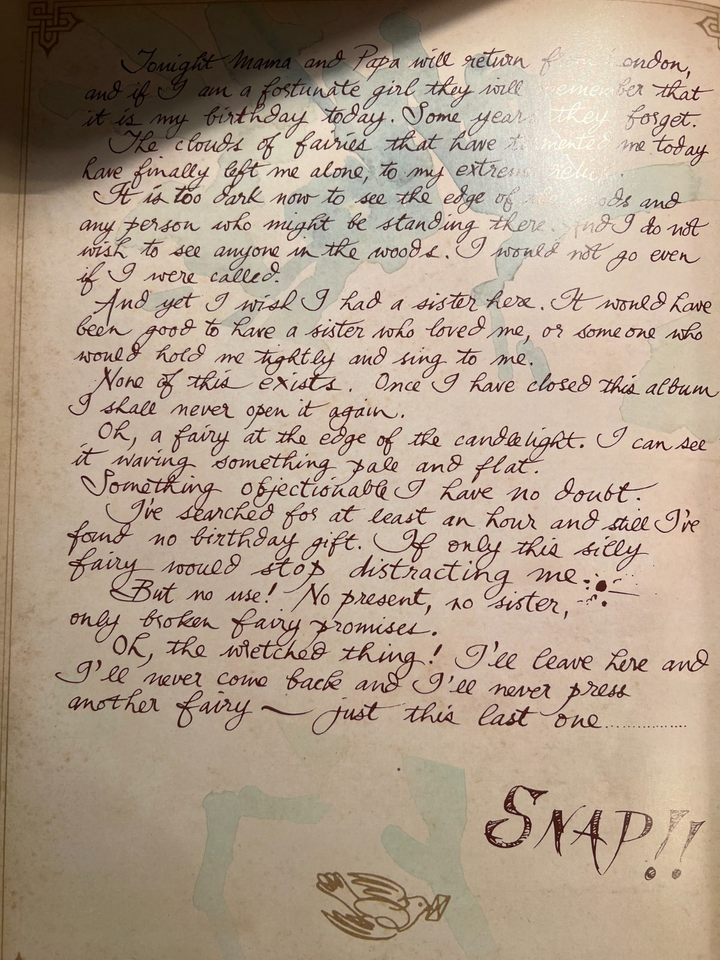 Tonight Mama and Papa will return from London,
and if I am a fortunate girl they will remember that
it is my birthday today. Some years they forget.
The clouds of fairies that have tormented me today
have finally left me alone, to my extreme relief.
It is too dark now to see the edge of the woods and
any person who might be standing there. And I do not
wish to see anyone in the woods. I would not go even
if I were called.
And yet I wish I had a sister here. It would have
been good to have a sister who loved me, or someone who
would hold me tightly and sing to me.
None of this exists. Once I have closed this album
I shall never open it again.
Oh, a fairy at the edge of the candlelight. I can see
it waving something pale and flat.
Something objectionable I have no doubt.
I've searched for at least an hour and still I've
found no birthday gift. If only this silly
fairy would stop distracting me.
But no use! No present, no sister,
only broken fairy promises.
Oh, the wretched thing! I'll leave here and
I'll never come back and I'll never press
another fairy — just this last one...............
SNAP!!